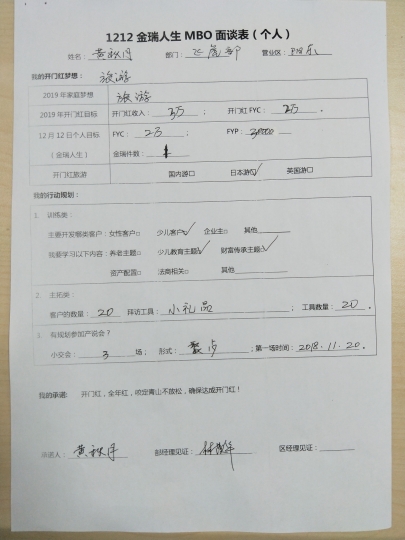 1212 金瑞人生 MBO 面谈表（个人）
姓名：黄秋月 部门：飞虎部 营业区：
我的开门红梦想：旅游
2019 年家庭梦想 旅游
2019 年开门红目标 开门红收入：3万； 开门红 FYC：2万。
12 月 12 日个人目标 FYC：2万； FYP：
（金瑞人生） 金瑞件数：1
开门红旅游 国内游□ 日本游□✓ 英国游□
我的行动规划：
1. 训练类：
主要开发哪类客户：女性客户□ 少儿客户□✓ 企业主□ 其他
我要学习以下内容：养老主题□ 少儿教育主题□✓ 财富传承主题□✓
资产配置□ 法商相关□ 其他
2. 主拓类：
客户的数量：20 拜访工具：小礼品；工具数量：20。
3. 有规划参加产说会？
小交会：3 场； 形式：散步；第一场时间：2018.11.20。
我的承诺： 开门红，全年红，咬定青山不放松，确保达成开门红！
承诺人：黄秋月 部经理见证： 区经理见证：